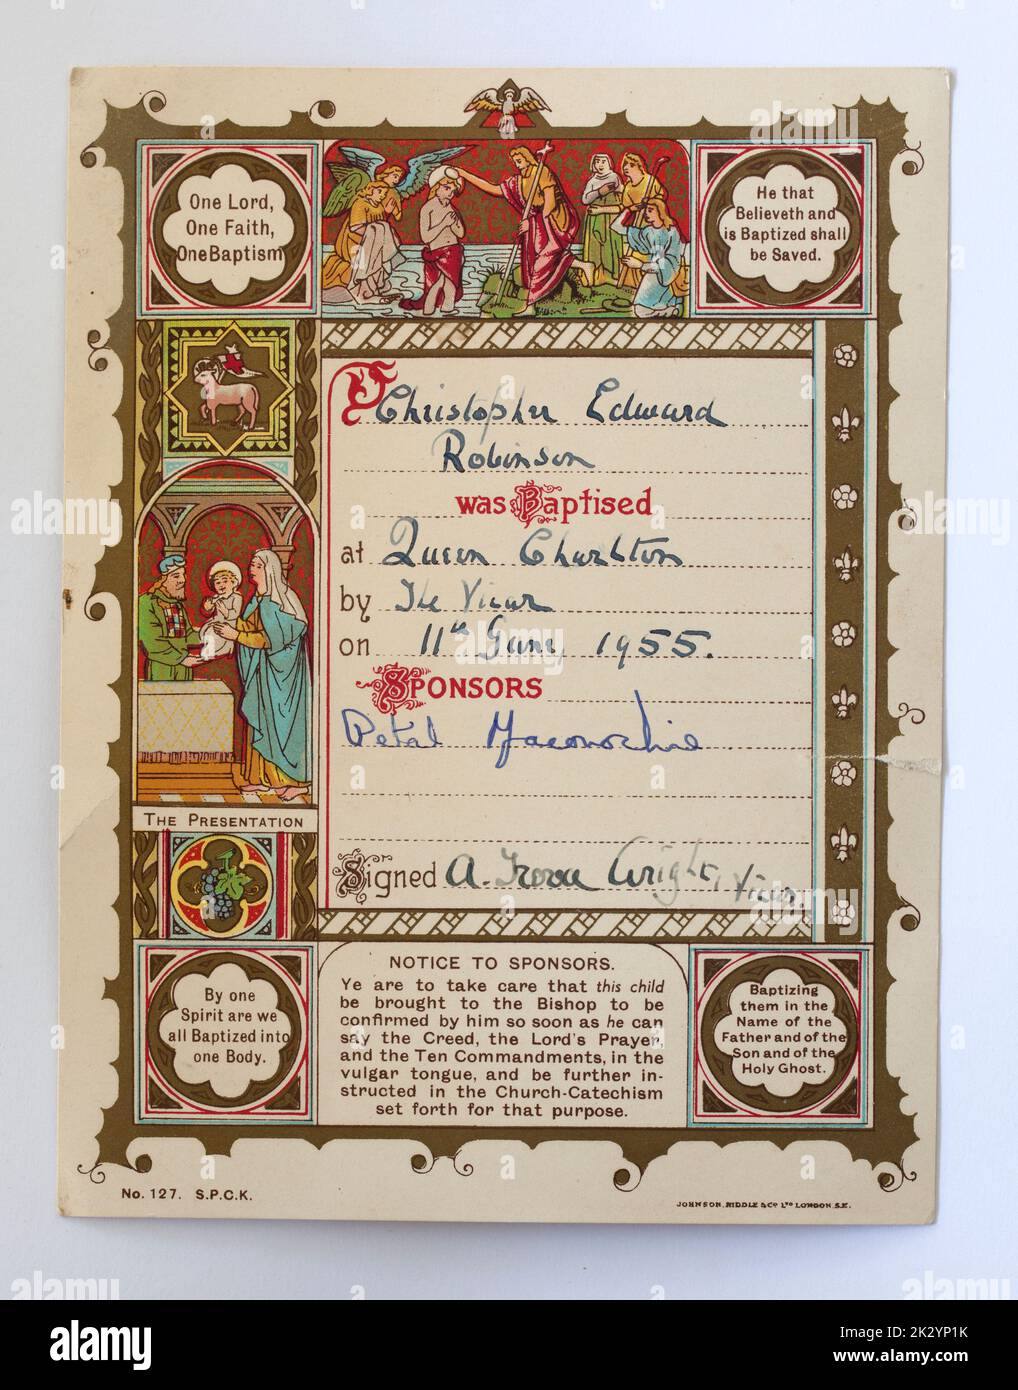 One Lord,
One Faith,
One Baptism
He that
Believeth and
is Baptized shall
be Saved.
Christopher Edward
Robinson
was Baptised
at Queen Charlton
by The Vicar
on 11th June, 1955.
SPONSORS
Petal Maconochie
THE PRESENTATION
Signed A. Wright, Vicar.
By one
Spirit are we
all Baptized into
one Body.
NOTICE TO SPONSORS.
Ye are to take care that this child
be brought to the Bishop to be
confirmed by him so soon as he can
say the Creed, the Lord's Prayer,
and the Ten Commandments, in the
vulgar tongue, and be further in-
structed in the Church-Catechism
set forth for that purpose.
Baptizing
them in the
Name of the
Father and of the
Son and of the
Holy Ghost.
No. 127. S.P.C.K.
JOHNSON, RIDDLE & Co LTD LONDON, S.E.
alamy
Image ID: 2K2YP1K
www.alamy.com